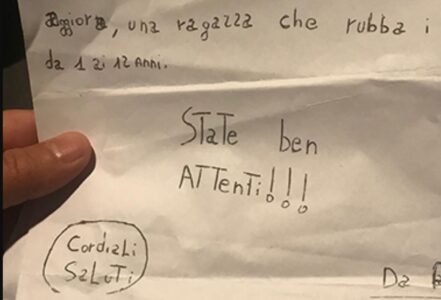 aggiora, una ragazza che rubba i
da 1 ai 12 anni.
STATE ben
ATTenTi!!!
Cordiali
SaLuTi
Da